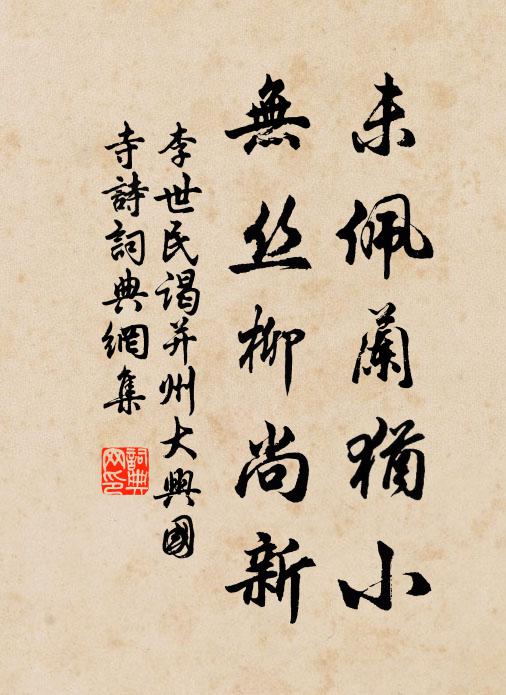 未佩蘭猶小
無丝柳尚新
李世民谒并州大興國
寺詩詞典網集
詞典
网印